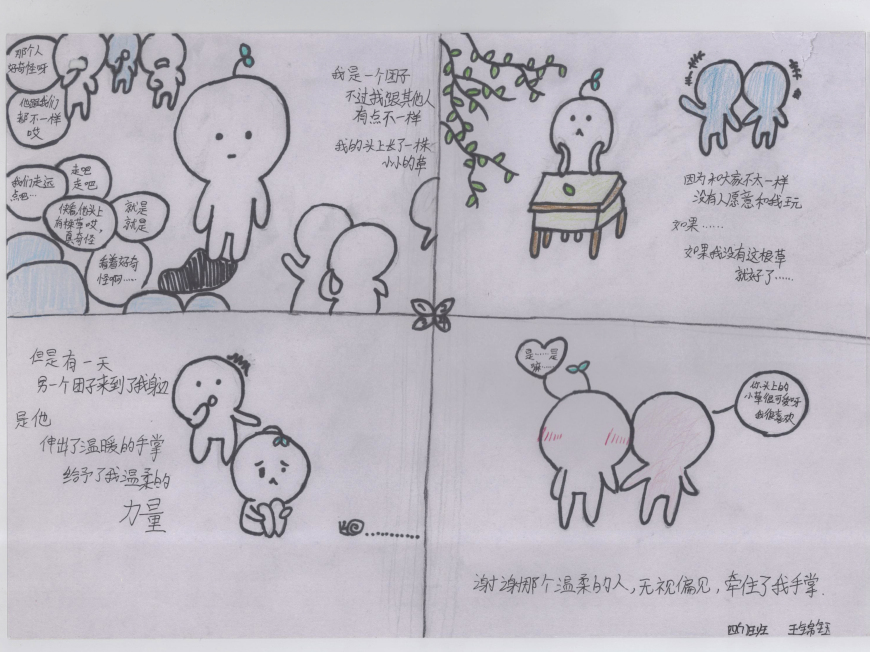 那个人
好奇怪呀
他跟我们
都不一样
哎
我是一个团子
不过我跟其他人
有点不一样
我的头上长了一株
小小的草
走吧
走吧
我们走远
点吧…
快看他头上
有棵草哎，
真奇怪
就是
就是
看着好奇
怪啊……
因为和大家不太一样
没有人愿意和我玩
如果……
如果我没有这根草
就好了……
但是有一天
另一个团子来到了我身边
是他
伸出了温暖的手掌
给予了我温柔的
力量
是……是
嘛……
你头上的
小草很可爱呀
我很喜欢
谢谢那个温柔的人，无视偏见，牵住了我手掌.